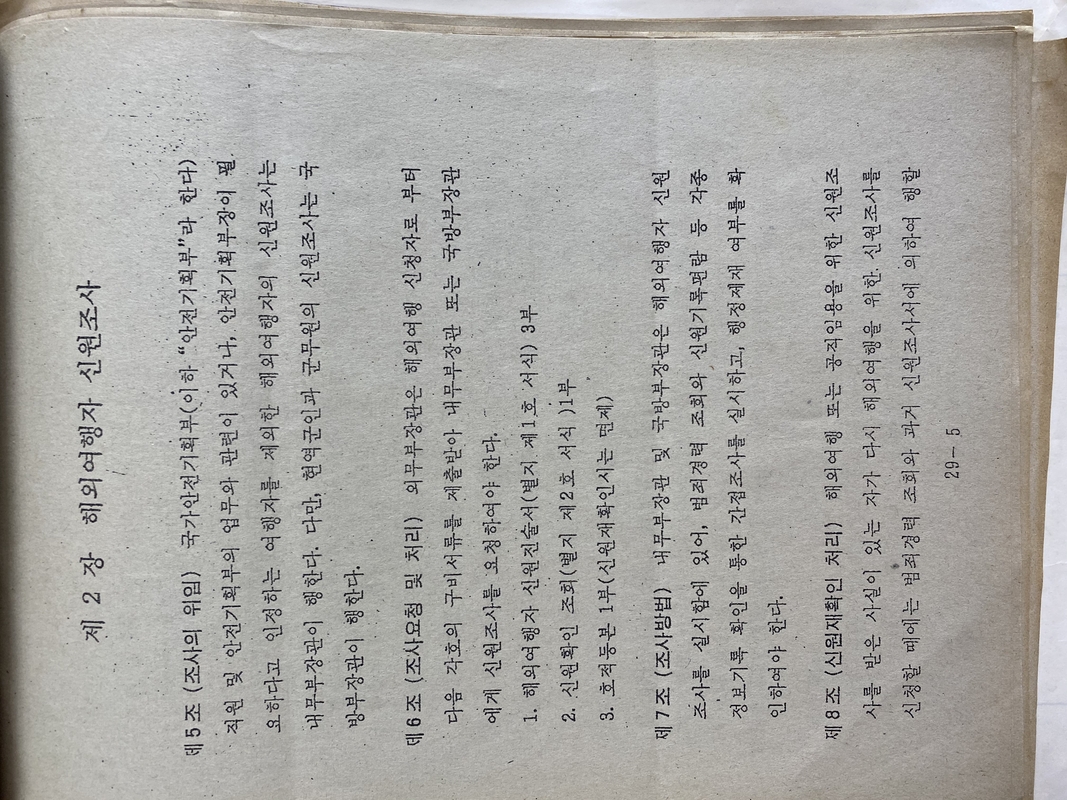 제 2 장 해외여행자 신원조사
제5조 (조사의 위임) 국가안전기획부(이하 “안전기획부”라 한다)
직원 및 안전기획부의 업무와 관련이 있거나, 안전기획부장이 필
요하다고 인정하는 여행자를 제외한 해외여행자의 신원조사는
내무부장관이 행한다. 다만, 현역군인과 군무원의 신원조사는 국
방부장관이 행한다.
제6조 (조사요청 및 처리) 외무부장관은 해외여행 신청자로 부터
다음 각호의 구비서류를 제출받아 내무부장관 또는 국방부장관
에게 신원조사를 요청하여야 한다.
1. 해외여행자 신원진술서(별지 제1호 서식) 3부
2. 신원확인 조회(별지 제2호 서식 )1부
3. 호적등본 1부(신원재확인시는 면제)
제7조 (조사방법) 내무부장관 및 국방부장관은 해외여행자 신원
조사를 실시함에 있어, 범죄경력 조회와 신원기록편람 등 각종
정보기록 확인을 통한 간접조사를 실시하고, 행정제재 여부를 확
인하여야 한다.
제8조 (신원재확인 처리) 해외여행 또는 공직임용을 위한 신원조
사를 받은 사실이 있는 자가 다시 해외여행을 위한 신원조사를
신청할 때에는 범죄경력 조회와 과거 신원조사서에 의하여 행할
29-5